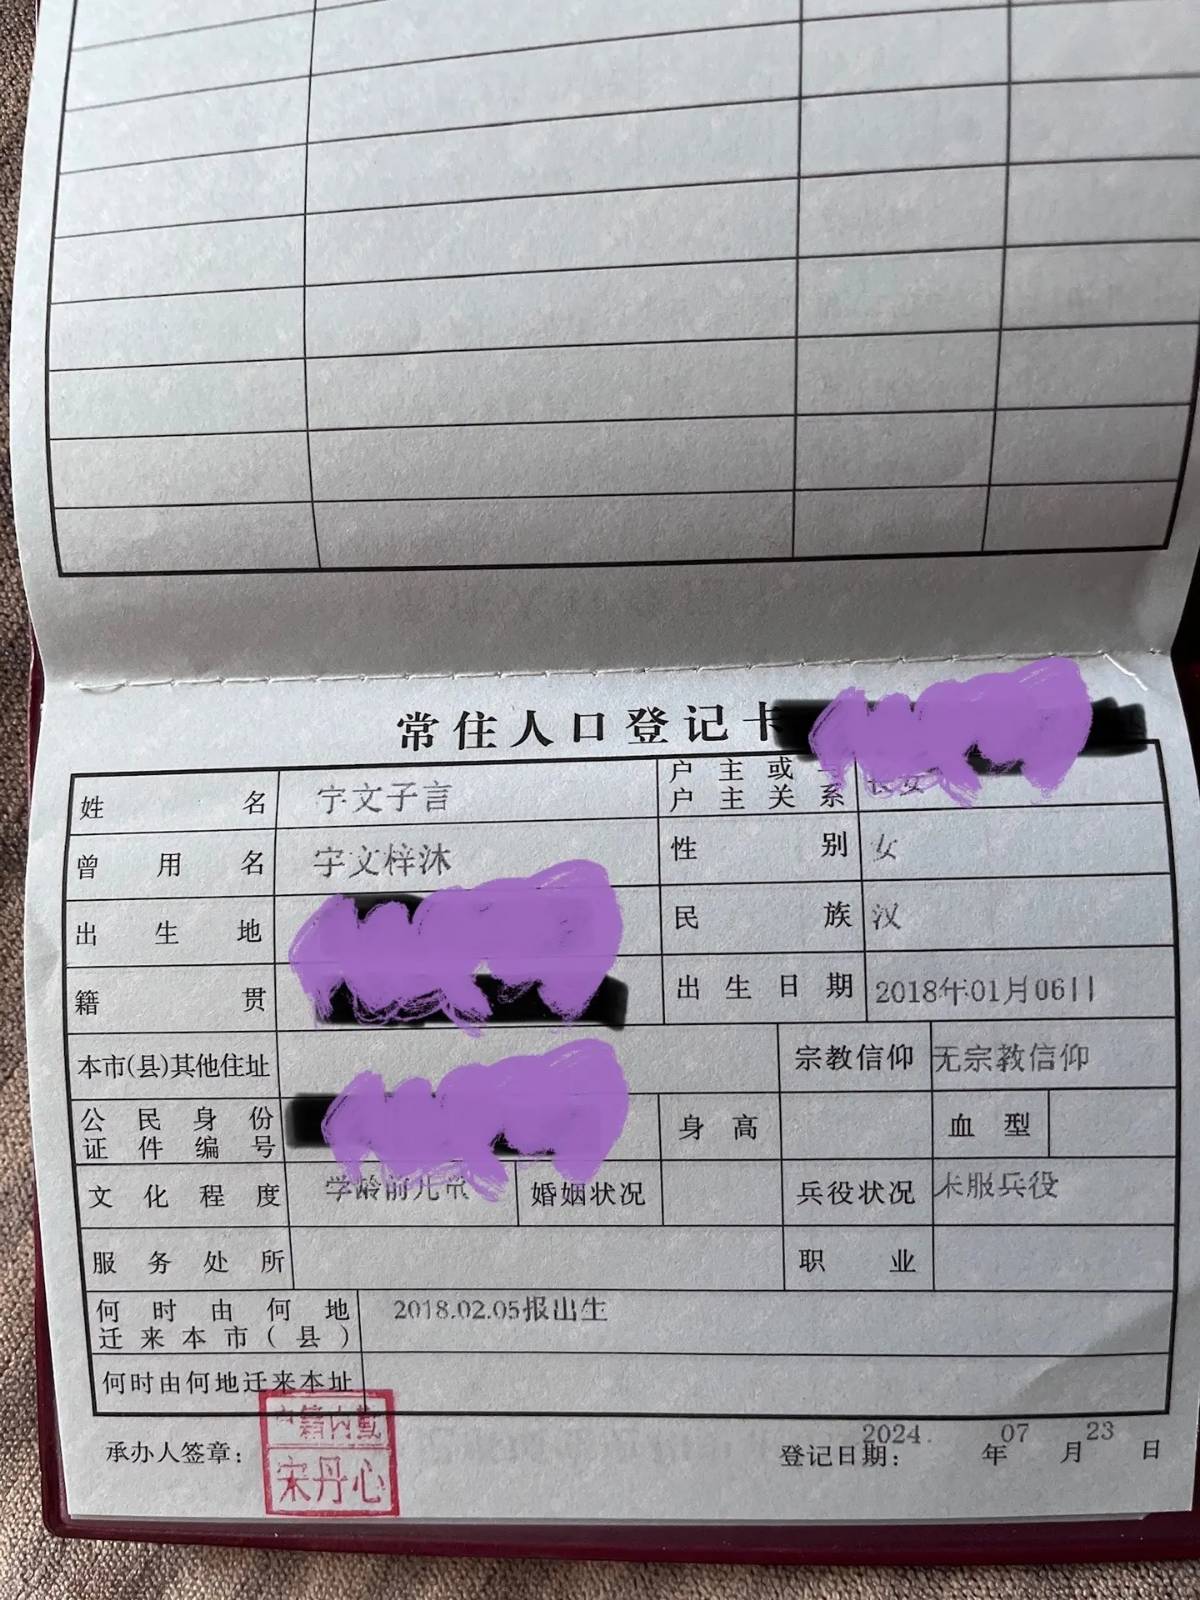 常住人口登记卡
姓名 宇文子言 户主或与户主关系 长女
曾用名 宇文梓沐 性别 女
出生地 民族 汉
籍贯 出生日期 2018年01月06日
本市(县)其他住址 宗教信仰 无宗教信仰
公民身份证件编号 身高 血型
文化程度 学龄前儿童 婚姻状况 兵役状况 未服兵役
服务处所 职业
何时由何地迁来本市(县) 2018.02.05报出生
何时由何地迁来本址
承办人签章: 宋丹心 登记日期: 2024. 年 07 月 23 日